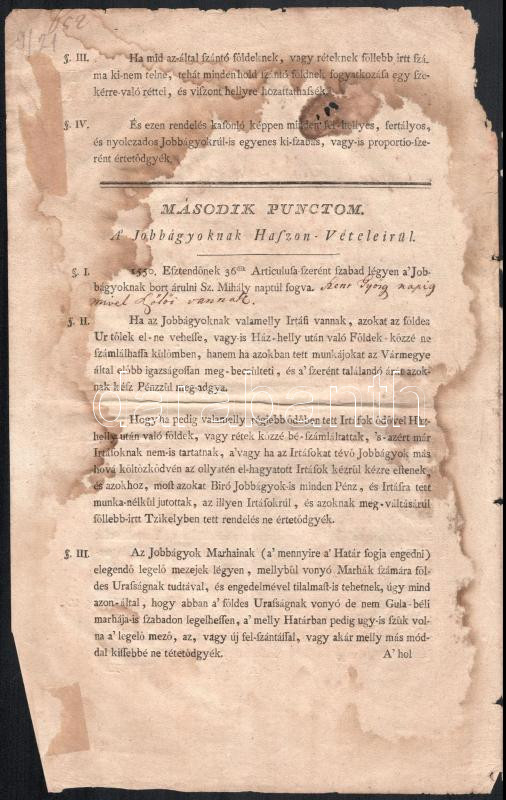 §. III. Ha mid az-által szántó földeknek, vagy réteknek föllebb irtt szá-
ma ki-nem telne, tehát minden hold szántó földnek fogyatkozása egy sze-
kérre-való réttel, és viszont hellyre hozattathassék.
§. IV. És ezen rendelés hasonló képpen minden fel-hellyes, fertályos,
és nyolczados Jobbágyokrúl-is egyenes ki-szabás, vagy-is proportio-sze-
rént értetődgyék.
MÁSODIK PUNCTOM.
A' Jobbágyoknak Haszon-Vételeirül.
§. I. 1550. Esztendőnek 36dik Articulusa-szerént szabad légyen a' Job-
bágyoknak bort árulni Sz. Mihály naptúl fogva. Szent Györg napig
mivel Szőlői vannak.
§. II. Ha az Jobbágyoknak valamelly Irtási vannak, azokat az földes
Ur tőlek el-ne vehesse, vagy-is Ház-helly után való Földek-közzé ne
számlálhassa külömben, hanem ha azokban tett munkájokat az Vármegye
által előbb igazságossan meg-becsülteti, és a' szerént találandó árát azok-
nak kész Pénzzül meg-adgya.
Hogy ha pedig valamelly régiebb üdőben tett Irtások üdővel Ház-
helly után való földek, vagy rétek közzé bé-számláltattak, 's-azért már
Irtásoknak nem-is tartatnak, a'vagy ha az Irtásokat tévő Jobbágyok más
hová költözködvén az ollyatén el-hagyatott Irtások kézrül kézre estenek,
és azokhoz, most azokat Biró Jobbágyok-is minden Pénz, és Irtásra tett
munka-nélkül jutottak, az illyen Irtásokrúl, és azoknak meg-váltásárúl
föllebb-irtt Tzikelyben tett rendelés ne értetődgyék.
§. III. Az Jobbágyok Marhainak (a' mennyire a' Határ fogja engedni)
elegendő legelő mezejek légyen, mellybül vonyó Marhák számára föl-
des Uraságnak tudtával, és engedelmével tilalmast-is tehetnek, úgy mind
azon-által, hogy abban a' földes Uraságnak vonyó de nem Gula-béli
marhája-is szabadon legelhessen, a' melly Határban pedig ugy-is szük vol-
na a' legelő mező, az, vagy új fel-szántással, vagy akár melly más mód-
dal kissebbé ne tétetődgyék. A' hol
darabanth